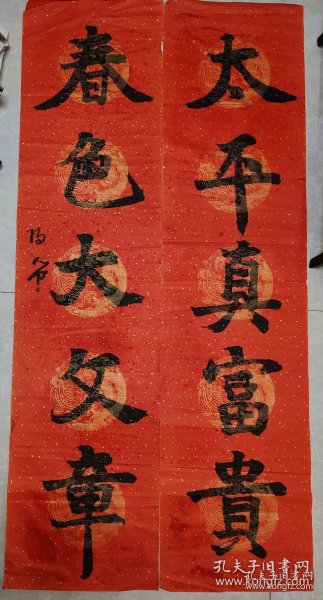 太平真富貴
春色大文章
孔夫子旧书网